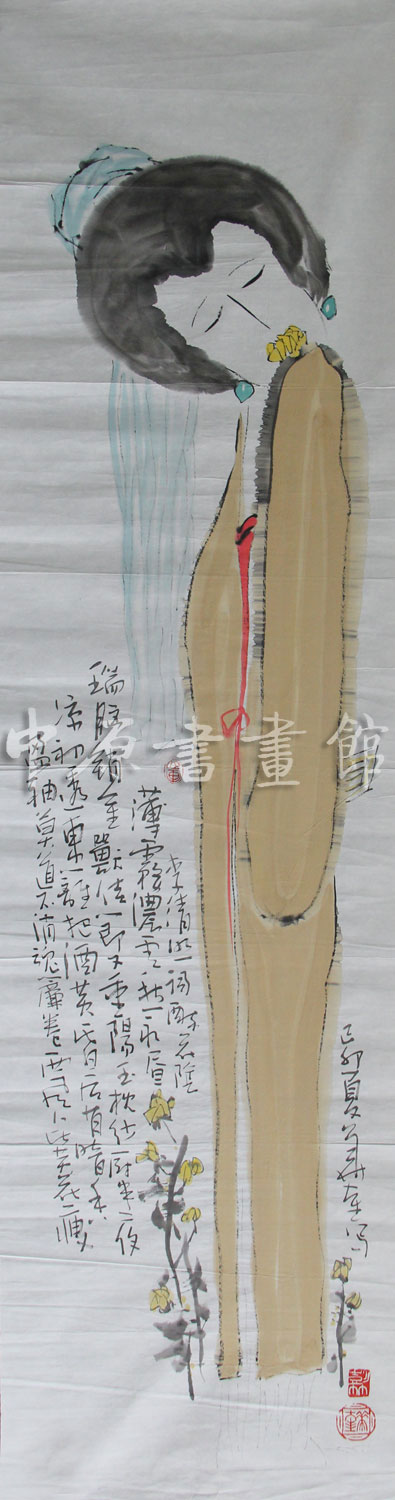 己卯夏
写
李清照词醉花陰
薄霧濃雲愁永昼
瑞腦銷金獸佳節又重陽玉枕纱厨半夜
凉初透東籬把酒黄昏后有暗香
盈袖莫道不消魂簾卷西風人比黄花瘦
中原書畫館